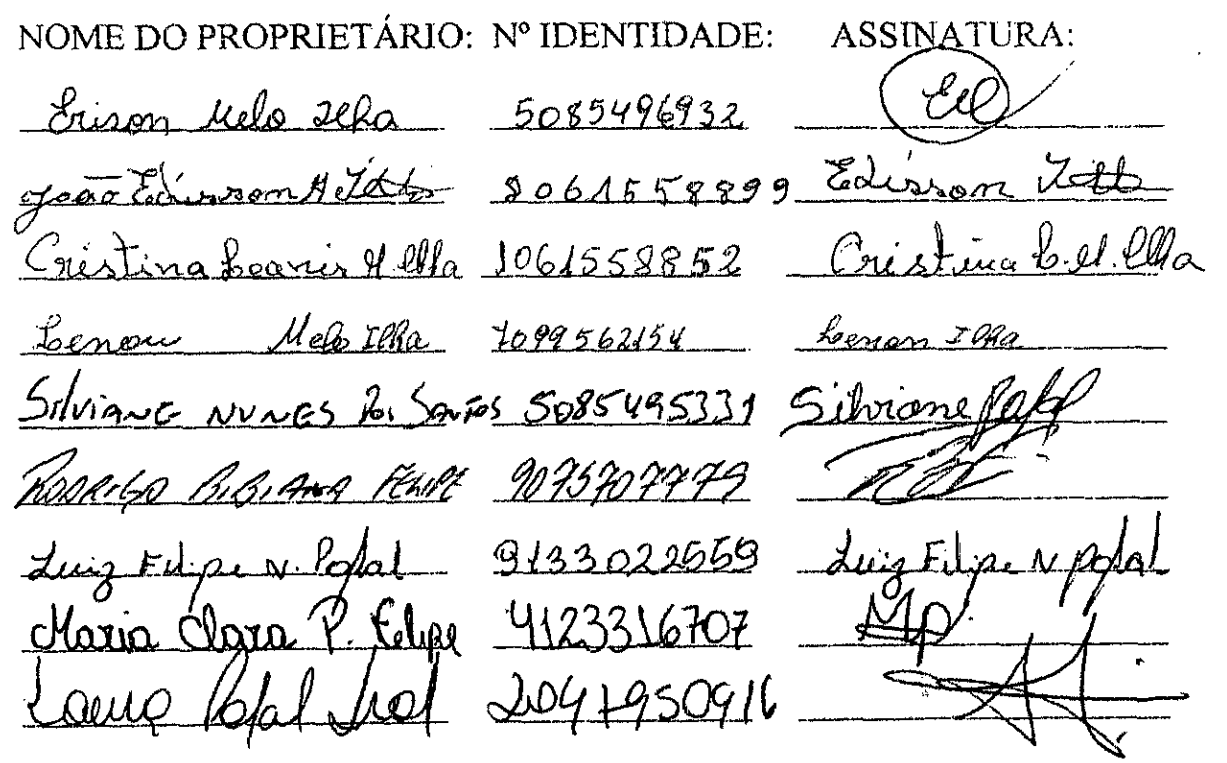 NOME DO PROPRIETÁRIO: Nº IDENTIDADE: ASSINATURA:
Erison Melo Ilha 5085496932
João Edisson A 8061558899 Edisson
Cristina Loanis M Ilha 1061558852 Cristina L.M. Ilha
Lenon Melo Ilha 7099562154 Lenon Ilha
Silviane NUNES Dos Santos 5085495331 Silviane Pofal
RODRIGO BIBIANA FELIPE 9075707779
Luiz Filipe N. Pofal 9133022559 Luiz Filipe N Pofal
Maria Clara P. Felipe 4123316707 Mp.
Pofal